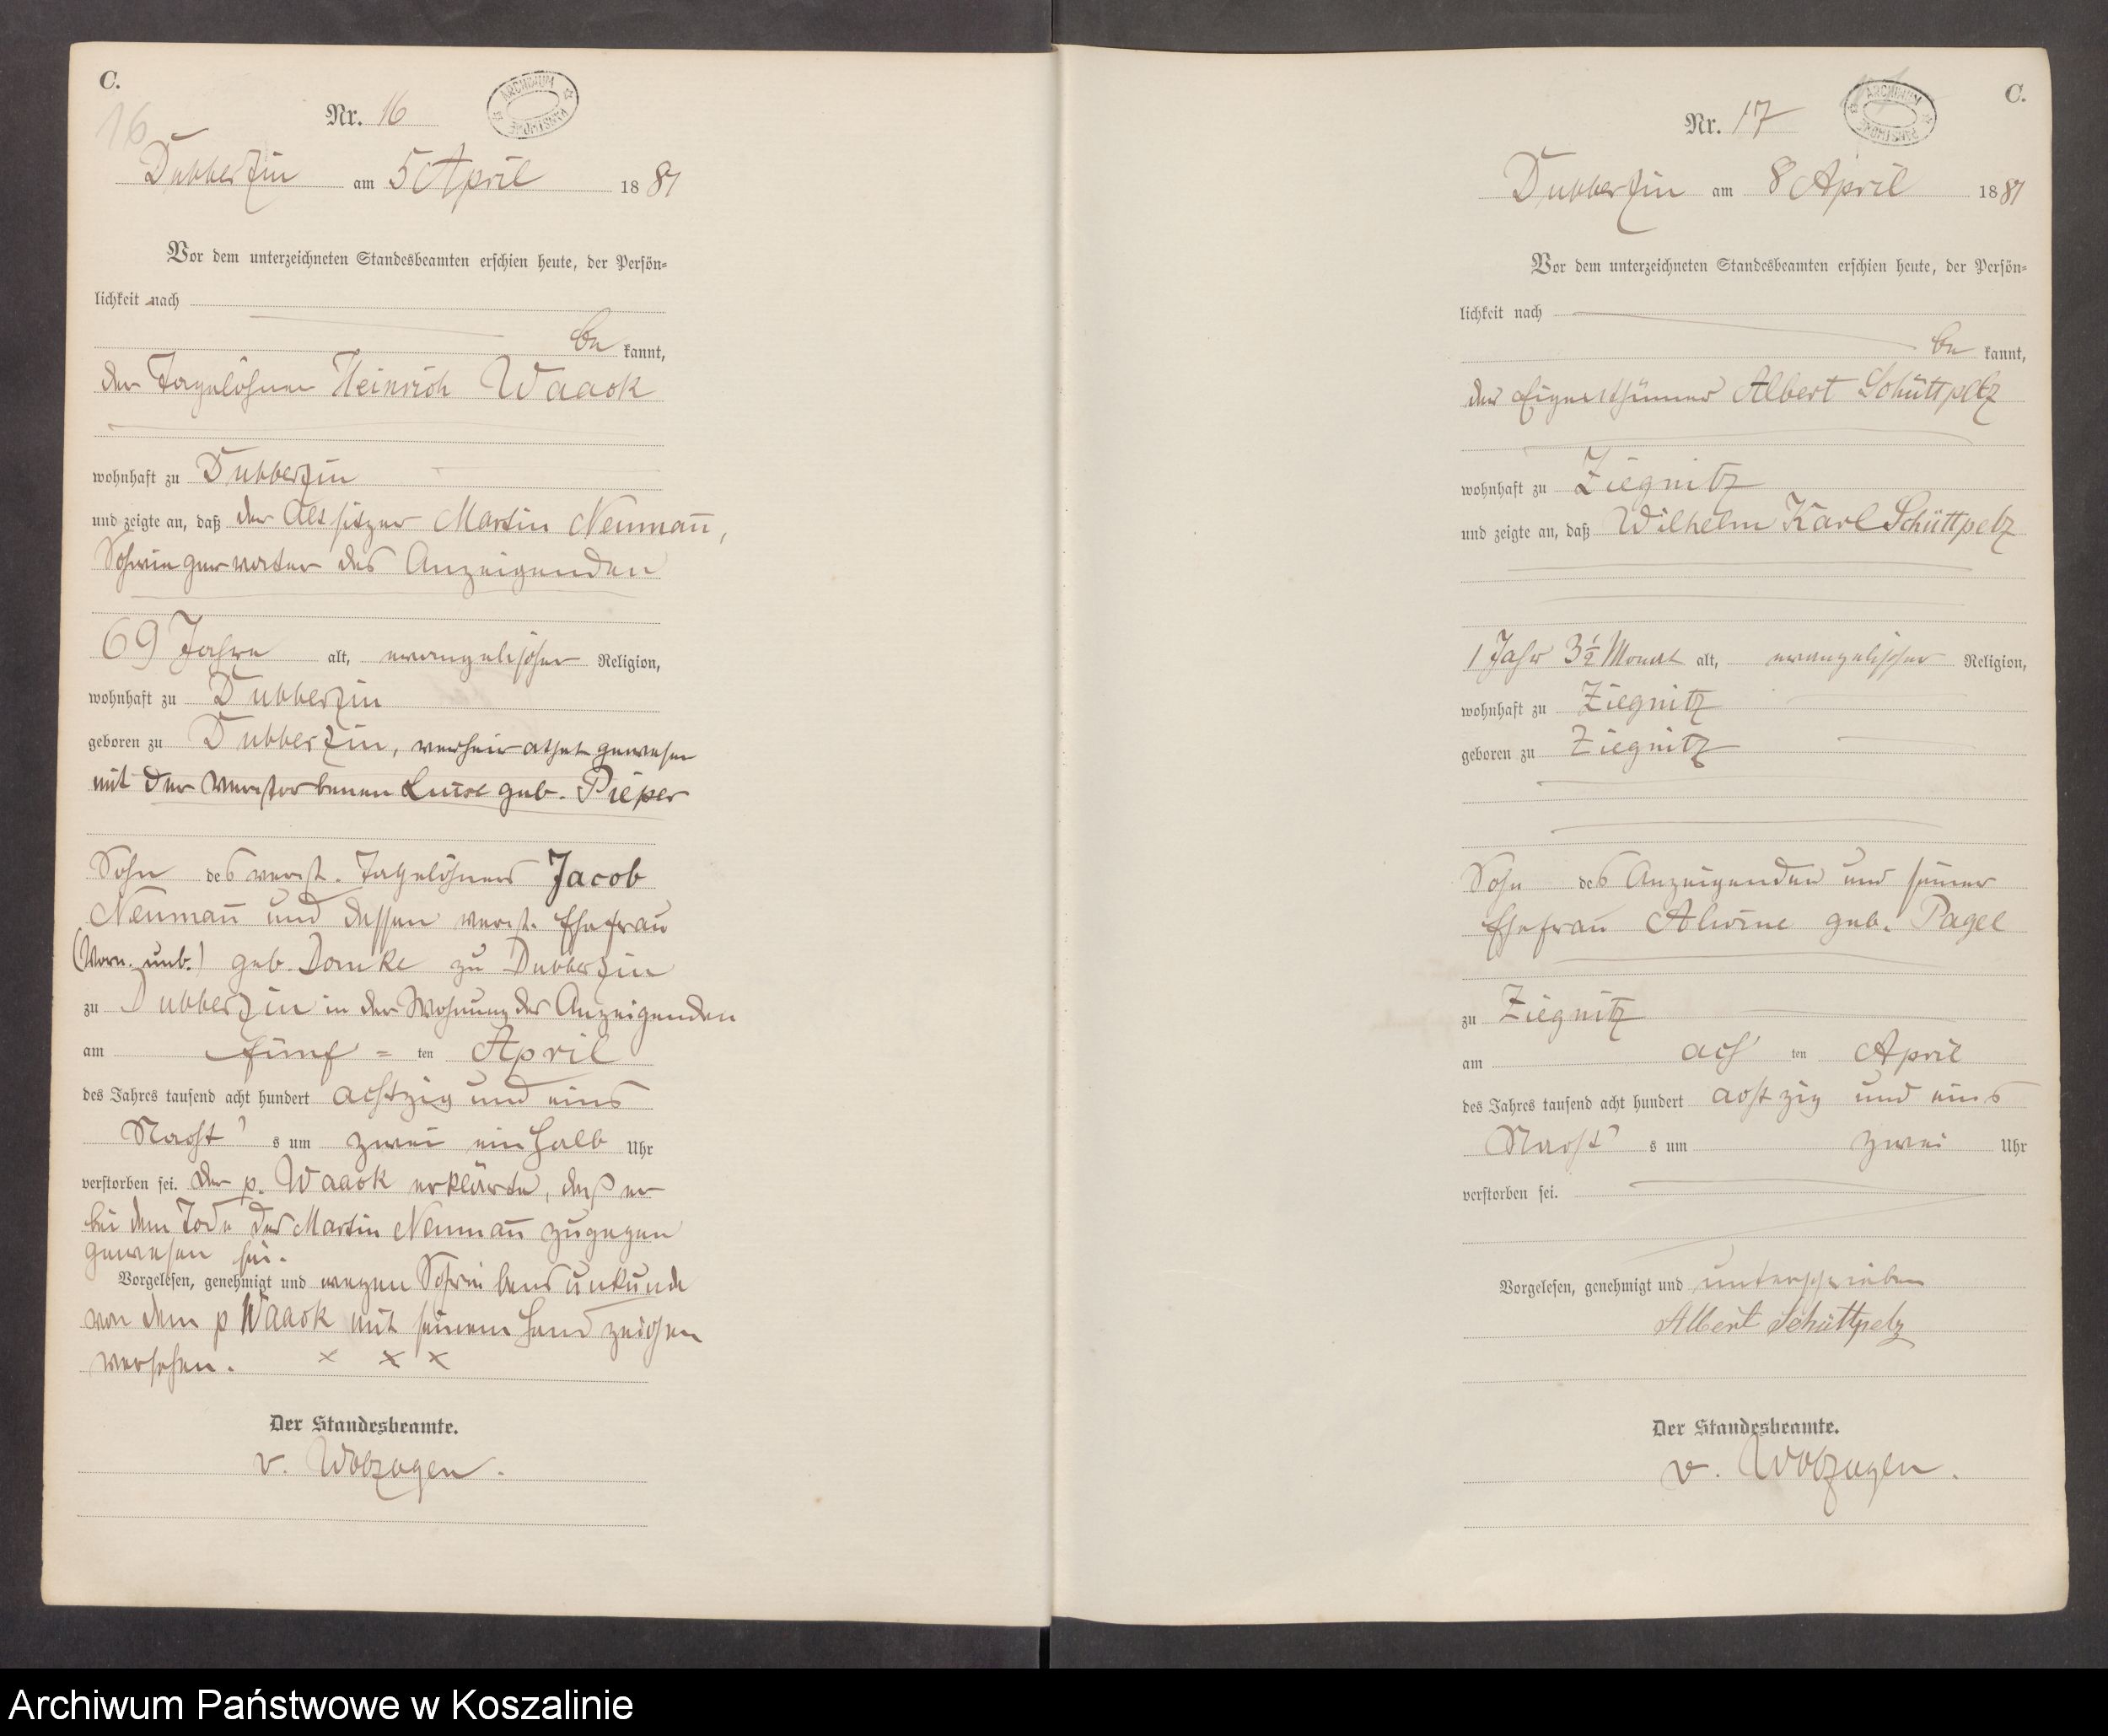 C.
16
Nr. 16
ARCHIWUM PAŃSTWOWE
Dubberzin am 5 April 1881
Vor dem unterzeichneten Standesbeamten erschien heute, der Persön-
lichkeit nach
be kannt,
der Tagelöhner Heinrich Waack
wohnhaft zu Dubberzin
und zeigte an, daß der Altsitzer Martin Neumañ,
Schwiegervater des Anzeigenden
69 Jahre alt, evangelischer Religion,
wohnhaft zu Dubberzin
geboren zu Dubberzin, verheirathet gewesen
mit der verstorbenen Luise geb. Pieper
Sohn des verst. Tagelöhners Jacob
Neumañ und dessen verst. Ehefrau
(Vorn. unb.) geb. Damke zu Dubberzin
zu Dubberzin in der Wohnung des Anzeigenden
am fünf = ten April
des Jahres tausend acht hundert achtzig und eins
Nacht s um zwei ein halb Uhr
verstorben sei. Der p. Waack erklärte, daß er
bei dem Tode des Martin Neumañ zugegen
gewesen sei.
Vorgelesen, genehmigt und wegen Schreibensunkunde
von dem p Waack mit seinem Handzeichen
versehen. x x x
Der Standesbeamte.
v. Wolzogen.
C.
Nr. 17
ARCHIWUM PAŃSTWOWE
Dubberzin am 8 April 1881
Vor dem unterzeichneten Standesbeamten erschien heute, der Persön-
lichkeit nach
be kannt,
der Eigenthümer Albert Schüttpelz
wohnhaft zu Ziegnitz
und zeigte an, daß Wilhelm Karl Schüttpelz
1 Jahr 3½ Monat alt, evangelischer Religion,
wohnhaft zu Ziegnitz
geboren zu Ziegnitz
Sohn des Anzeigenden und seiner
Ehefrau Alwine geb. Pagel
zu Ziegnitz
am ach ten April
des Jahres tausend acht hundert achtzig und eins
Nacht s um zwei Uhr
verstorben sei.
Vorgelesen, genehmigt und unterschrieben
Albert Schüttpelz
Der Standesbeamte.
v. Wolzogen.
Archiwum Państwowe w Koszalinie